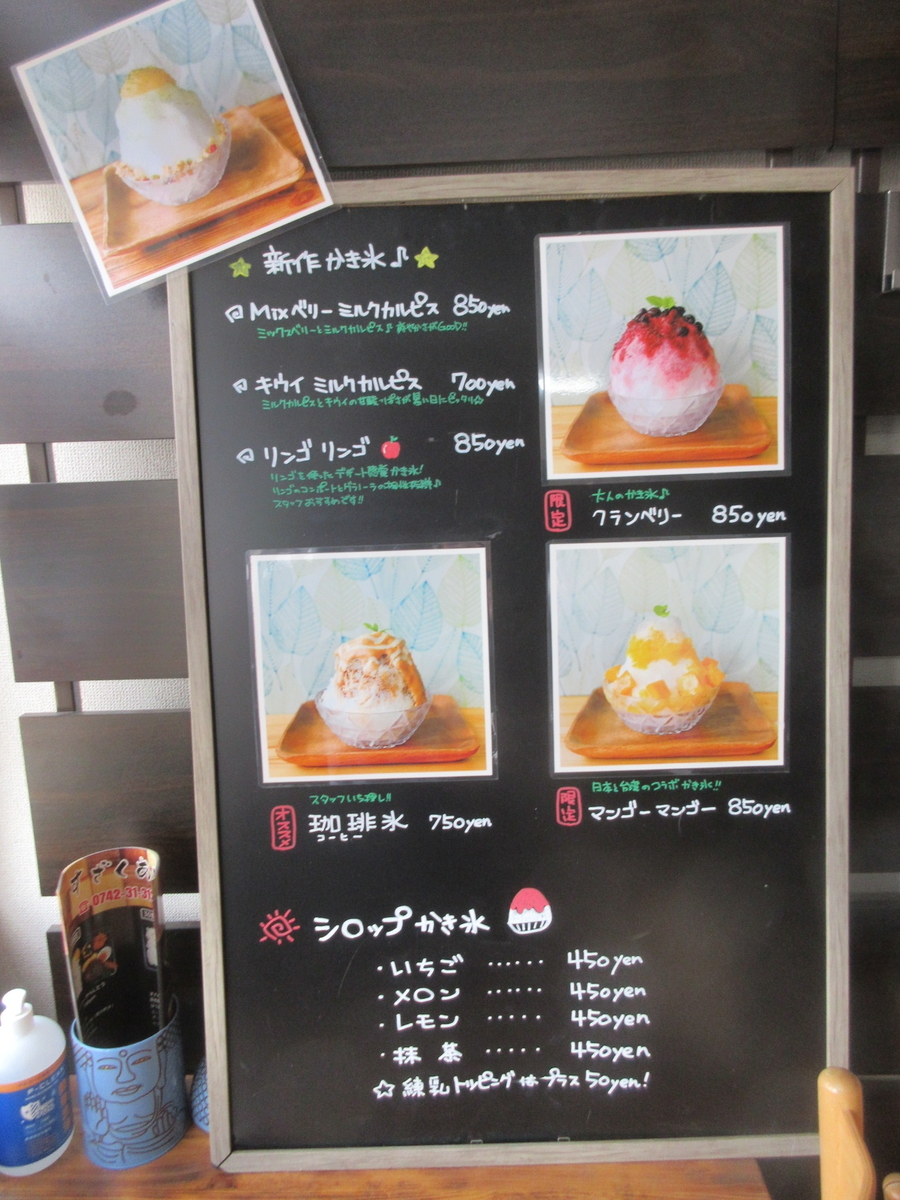 新作かき氷♪
Mixベリーミルクカルピス 850yen
ミックスベリーとミルクカルピス♪爽やかさがGooD!!
キウイ ミルクカルピス 700yen
ミルクカルピスとキウイの甘酸っぱさが暑い日にピッタリ☆
リンゴ リンゴ 850yen
リンゴを使ったデザート感覚かき氷!
リンゴのコンポートとグラノーラの相性抜群♪
スタッフおすすめです!!
限定
大人のかき氷♪
クランベリー 850yen
オススメ
スタッフいち押し!!
珈琲氷 750yen
コーヒー
限定
日本と台湾のコラボかき氷!!
マンゴーマンゴー 850yen
シロップかき氷
・いちご ······ 450yen
・メロン ······ 450yen
・レモン ····· 450yen
・抹茶 ····· 450yen
☆練乳トッピングはプラス50yen!
0742-31-31